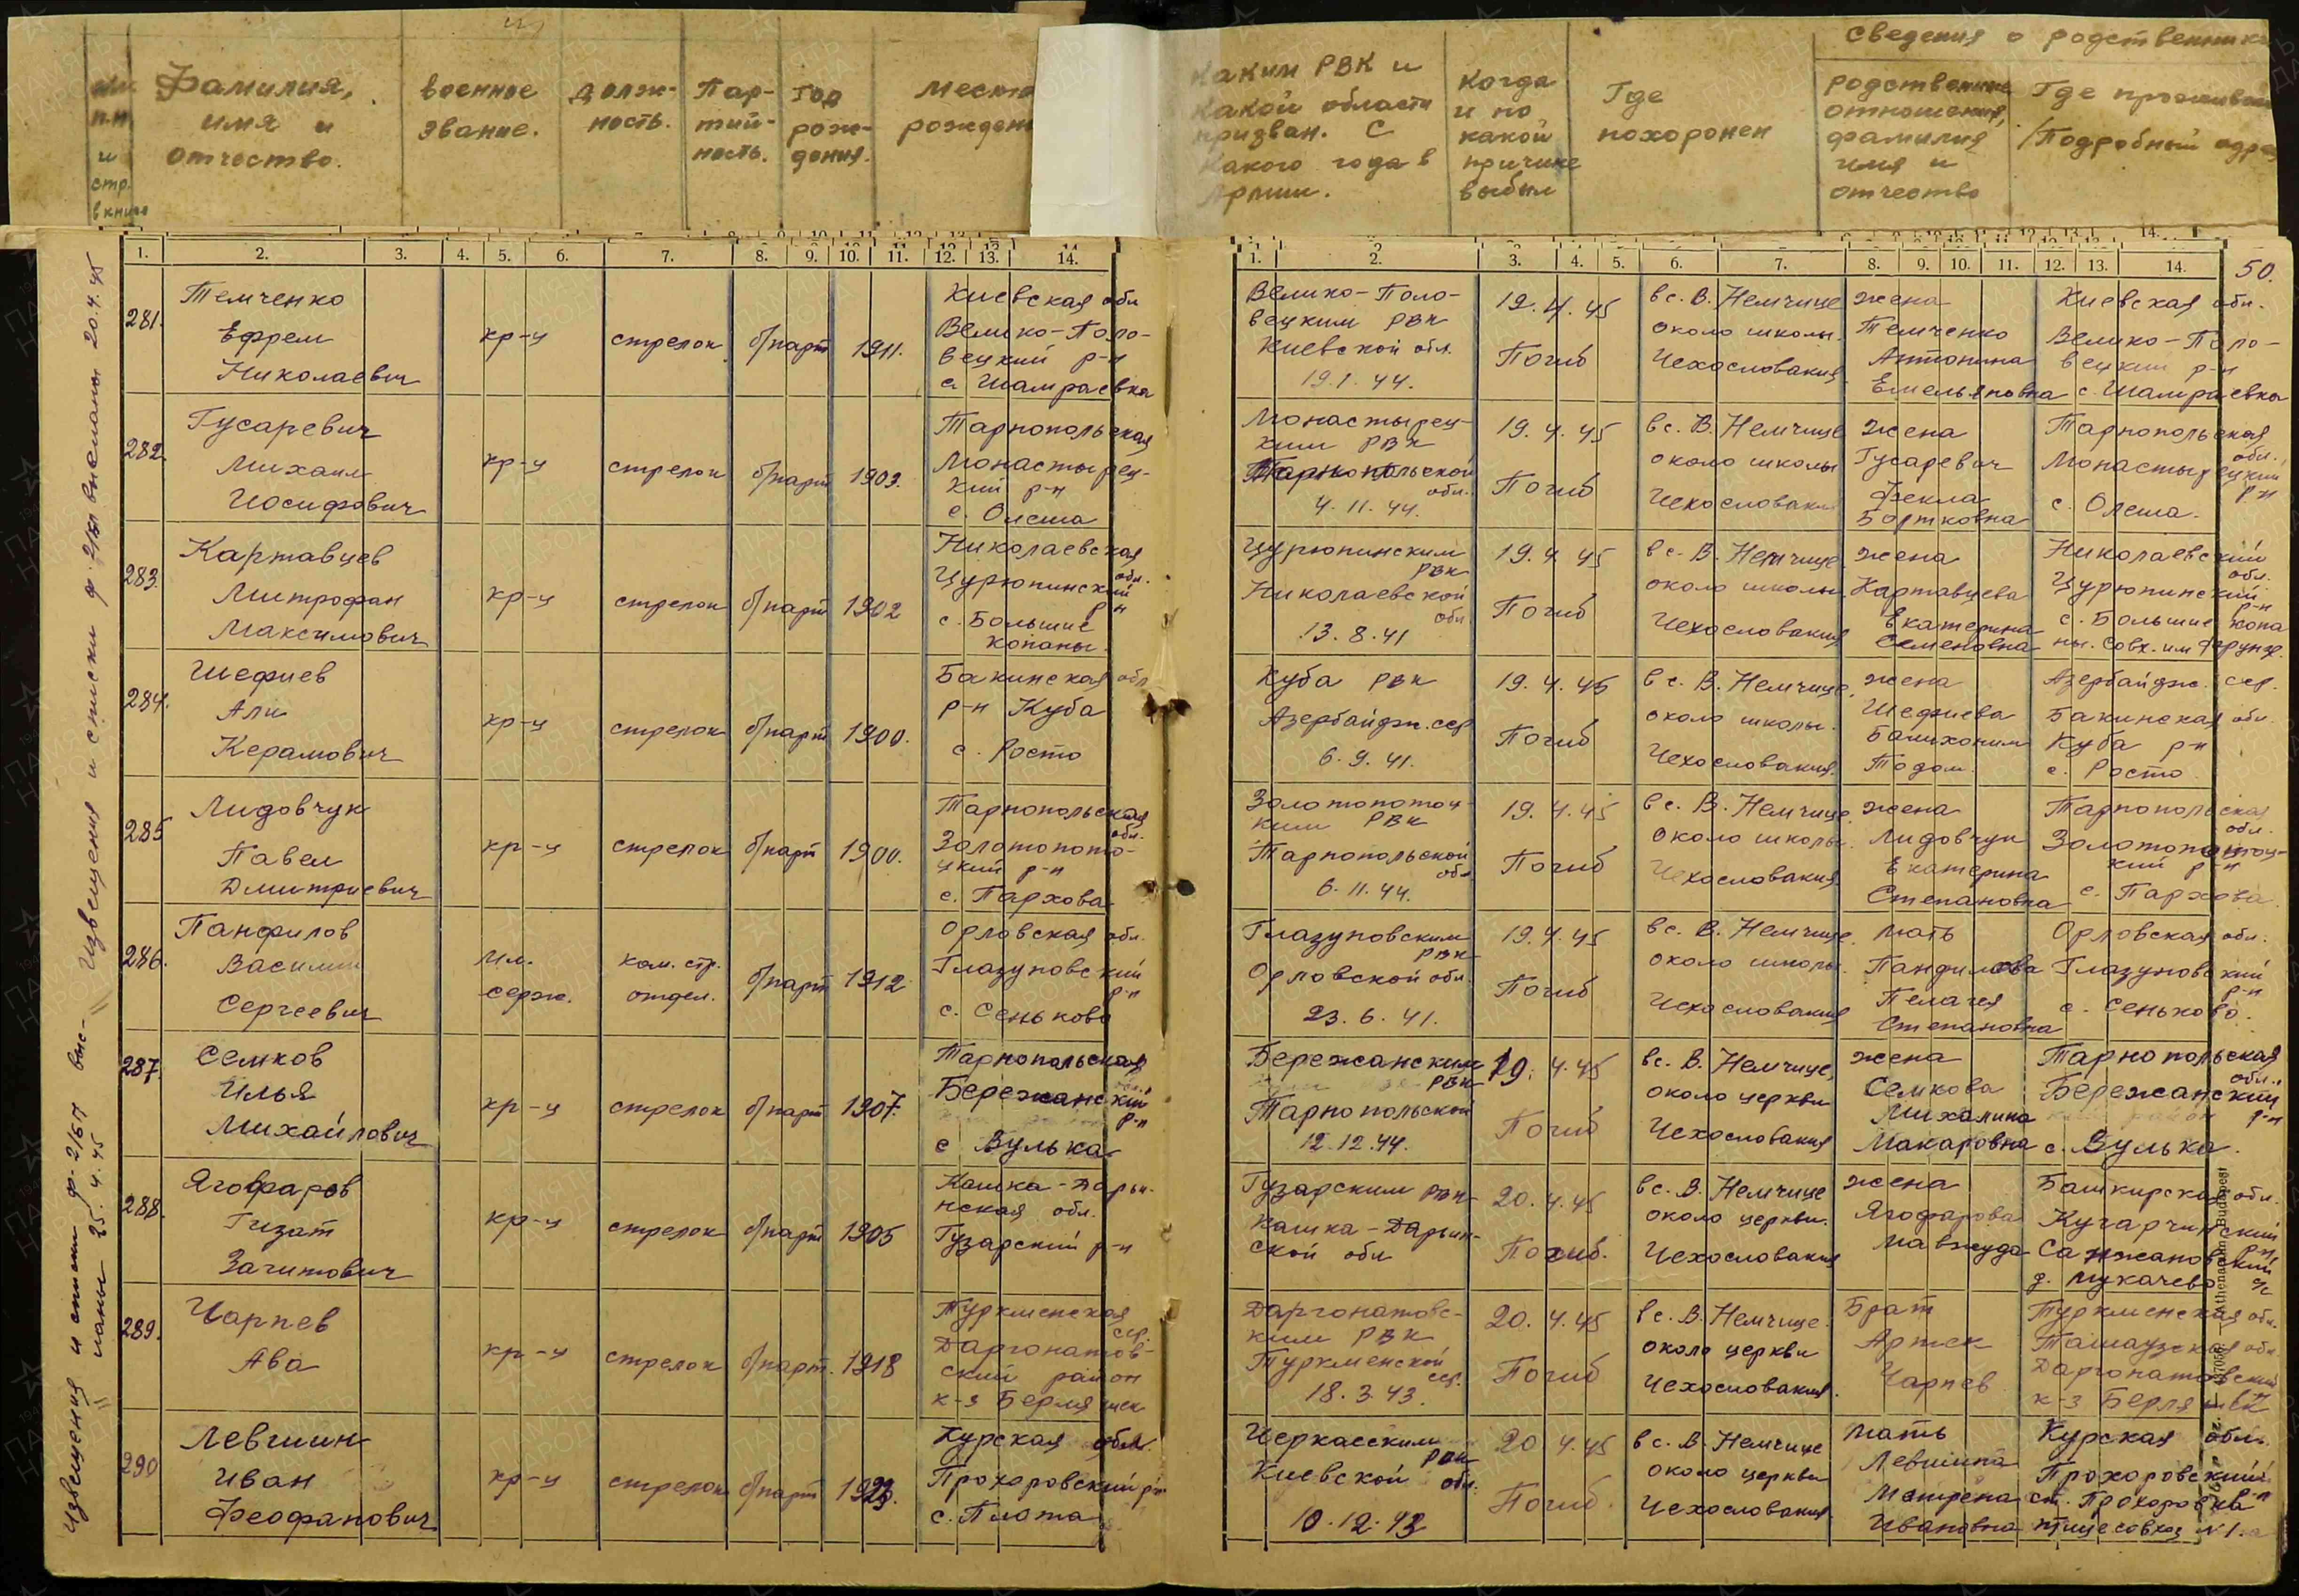 №№
п.п.
и
стр.
в книге
Фамилия,
имя и
отчество.
военное
звание.
долж-
ность.
Пар-
тий-
ность.
Год
рож-
дения.
Место
рожден
Каким РВК и
какой области
призван. С
какого года в
Армии.
Когда
и по
какой
причине
выбыл
Где
похоронен
Сведения о родственника
родственные
отношения,
фамилия
имя и
отчество
Где проживает
/Подробный адрес
1. 2. 3. 4. 5. 6. 7. 8. 9. 10. 11. 12. 13. 14.
1. 2. 3. 4. 5. 6. 7. 8. 9. 10. 11. 12. 13. 14.
50.
Извещения и списки ф. 2/БП высланы 20.4.45
Извещения и списки ф-2/БП выс-
ланы 25.4.45
281.
Темченко
Ефрем
Николаевич
кр-ц
стрелок
б/парт
1911.
Киевская обл
Велико-Поло-
вецкий р-н
с. Шамраевка
Велико-Поло-
вецким РВК
Киевской обл.
19.1.44.
19.4.45
Погиб
в с. В. Немчице
около школы.
Чехословакия
жена
Темченко
Антонина
Емельяновна
Киевская обл.
Велико-Поло-
вецкий р-н
с. Шамраевка
282.
Гусаревич
Михаил
Иосифович
кр-ц
стрелок
б/парт
1903.
Тарнопольская
Монастырец-
кий р-н
с. Олеша
Монастырец-
ким РВК
Тарнопольской
обл.
4.11.44.
19.4.45
Погиб
в с. В. Немчице
около школы
Чехословакия
жена
Гусаревич
Фекла
Бартковна
Тарнопольская
обл.
Монастырецкий
р-н
с. Олеша.
283.
Картавцев
Митрофан
Максимович
кр-ц
стрелок
б/парт
1902
Николаевская
обл.
Цурюпинский
р-н
с. Большие
Копаны.
Цурюпинским
РВК
Николаевской
обл
13.8.41
19.4.45
Погиб
в с. В. Немчице
около школы
Чехословакия
жена
Картавцева
Екатерина
Семеновна
Николаевский
обл.
Цурюпинский
р-н
с. Большие Копа
ны. Совх. им Фрунзе.
284.
Шефиев
Али
Керамович
кр-ц
стрелок
б/парт
1900.
Бакинская обл
р-н Куба
с. Росто
Куба РВК
Азербайдж. сср
6.9.41.
19.4.45
Погиб
в с. В. Немчице.
около школы.
Чехословакия.
жена
Шефиева
Балихоним
Тодом.
Азербайдж. сср.
Бакинская обл.
Куба р-н
с. Росто
285
Лидовчук
Павел
Дмитриевич
кр-ц
стрелок
б/парт
1900.
Тарнопольская
обл.
Золотопото-
цкий р-н
с. Пархова
Золотопотоц-
ким РВК
Тарнопольской
обл
6.11.44.
19.4.45
Погиб
в с. В. Немчице.
около школы.
Чехословакия.
жена
Лидовчук
Екатерина
Степановна
Тарнопольская
обл.
Золотопотоц-
кий р-н
с. Пархова.
286.
Панфилов
Василий
Сергеевич
мл.
серж.
ком. стр.
отдел.
б/парт
1912
Орловская обл.
Глазуновский
р-н
с. Сеньково
Глазуновским
РВК
Орловской обл.
23.6.41.
19.4.45
Погиб
в с. В. Немчице.
около школы.
Чехословакия
мать
Панфилова
Пелагея
Степановна
Орловская обл.
Глазуновский
р-н
с. Сеньково.
287.
Семков
Илья
Михайлович
кр-ц
стрелок
б/парт
1907.
Тарнопольская
Бережанский
р-н
с Вулька
Бережанским
РВК
Тарнопольской
12.12.44.
19.4.45
Погиб
в с. В. Немчице,
около церкви
Чехословакия
жена
Семкова
Михалина
Макаровна
Тарнопольская
обл.
Бережанский
р-н
с. Вулька.
288.
Ягофаров
Гизат
Загитович
кр-ц
стрелок
б/парт
1905
Кашка-Дарьи-
нская обл.
Гузарский р-н
Гузарским РВК
Кашка-Дарьин-
ской обл
20.4.45
Погиб.
в с. В. Немчице
около церкви.
Чехословакия
жена
Ягофарова
Мавжуда
Башкирская обл.
Кугарчинский
р-н
Санжановский
с/с
д. Мукачево
289.
Чарпев
Ава
кр-ц
стрелок
б/парт.
1918
Туркменская
сср.
Даргонатов-
ский район
к-з Берляшек
Даргонатовс-
ким РВК
Туркменской
сср.
18.3.43.
20.4.45
Погиб
в с. В. Немчице.
около церкви
Чехословакия.
Брат
Артек
Чарпев
Туркменская обл.
Ташаузская обл
Даргонатовский
к-з Берляшек
290
Левшин
Иван
Феофанович
кр-ц
стрелок
б/парт
1923.
Курская обл.
Прохоровский р-н
с. Плота
Черкасским
РВК
Киевской обл.
10.12.43
20.4.45
Погиб.
в с. В. Немчице
около церкви
Чехословакия.
мать
Левшина
Матрена
Ивановна
Курская обл.
Прохоровский
р-н
ст. Прохоровка
птицесовхоз №1.